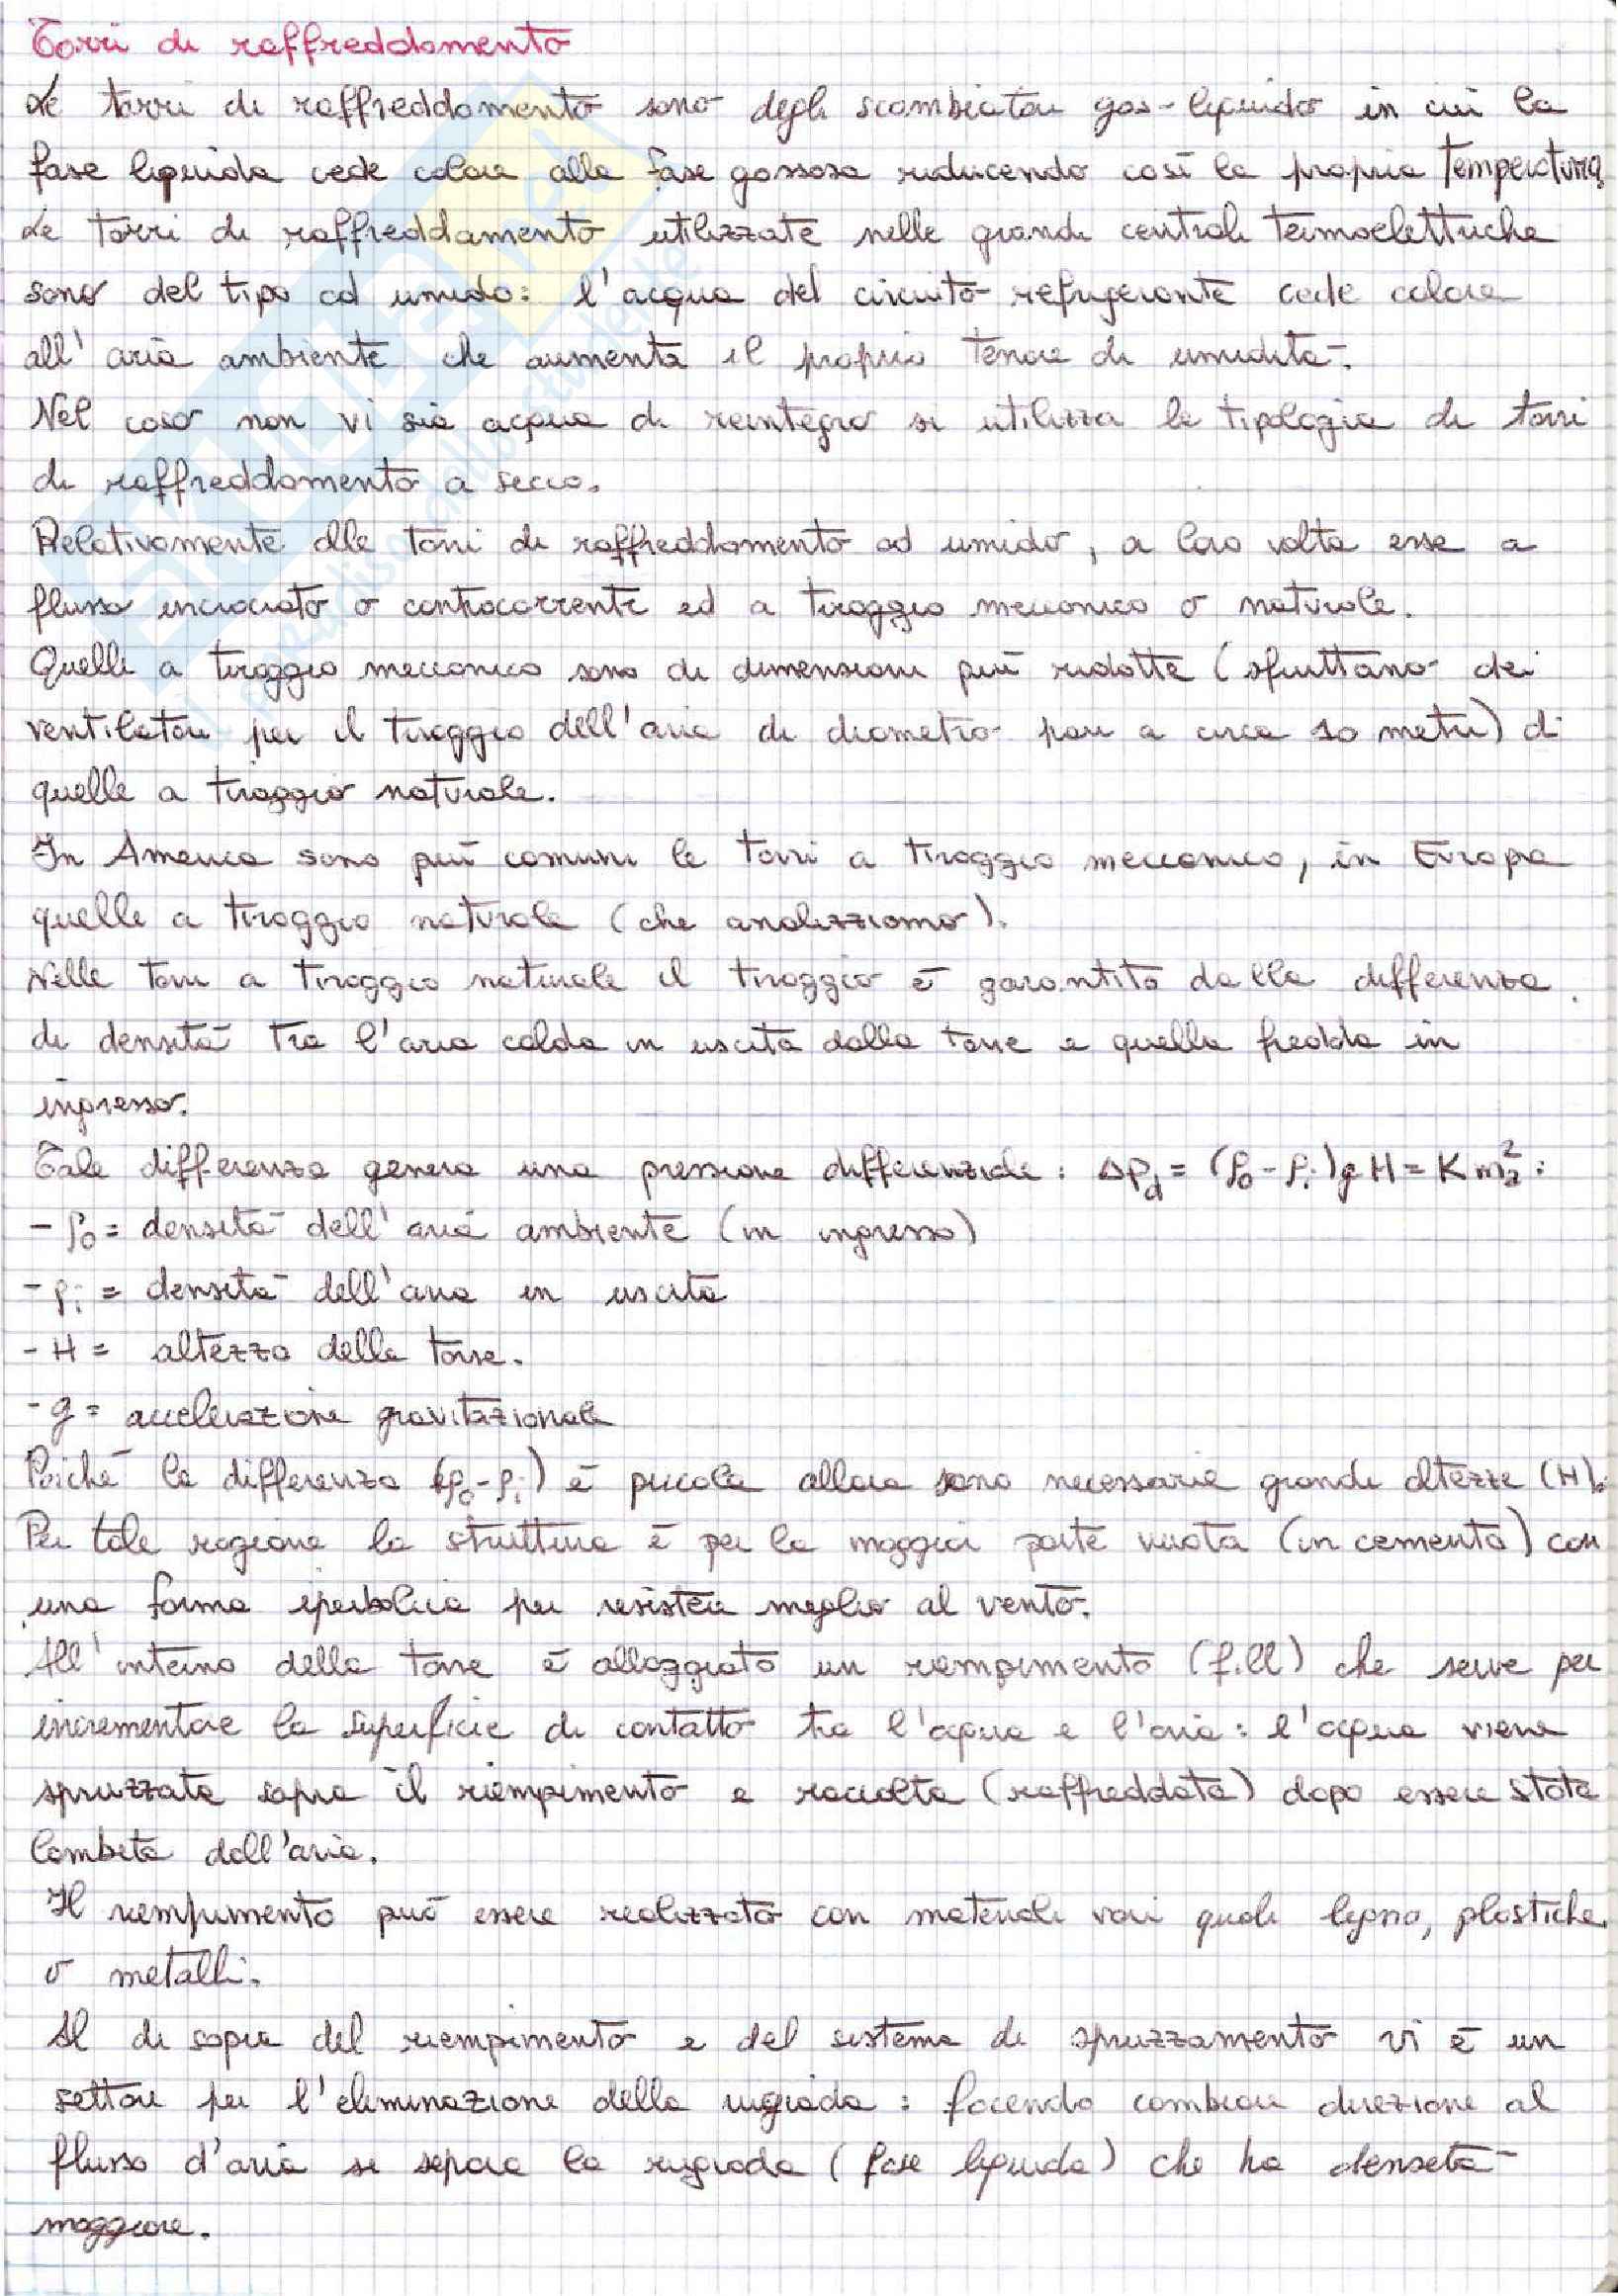 Torri di raffreddamento
Le torri di raffreddamento sono degli scambiatori gas-liquido in cui la
fase liquida cede calore alla fase gassosa riducendo così la propria temperatura.
Le torri di raffreddamento utilizzate nelle grandi centrali termoelettriche
sono del tipo ad umido: l'acqua del circuito refrigerante cede calore
all'aria ambiente che aumenta il proprio tenore di umidità.
Nel caso non vi sia acqua di reintegro si utilizza la tipologia di torri
di raffreddamento a secco.
Relativamente alle torri di raffreddamento ad umido, a loro volta esse a
flusso incrociato o controcorrente ed a tiraggio meccanico o naturale.
Quelle a tiraggio meccanico sono di dimensioni più ridotte (sfruttano dei
ventilatori per il tiraggio dell'aria di diametro pari a circa 10 metri) di
quelle a tiraggio naturale.
In America sono più comuni le torri a tiraggio meccanico, in Europa
quelle a tiraggio naturale (che analizziamo).
Nelle torri a tiraggio naturale il tiraggio è garantito dalla differenza
di densità tra l'aria calda in uscita dalla torre e quella fredda in
ingresso.
Tale differenza genera una pressione differenziale: Δp_d = (ρ_0 - ρ_i) g H = K m_a^2:
- ρ_0 = densità dell'aria ambiente (in ingresso)
- ρ_i = densità dell'aria in uscita
- H = altezza della torre.
- g = accelerazione gravitazionale
Poiché la differenza (ρ_0 - ρ_i) è piccola allora sono necessarie grandi altezze (H).
Per tale ragione la struttura è per la maggior parte vuota (in cemento) con
una forma iperbolica per resistere meglio al vento.
All'interno della torre è alloggiato un riempimento (fill) che serve per
incrementare la superficie di contatto tra l'acqua e l'aria: l'acqua viene
spruzzata sopra il riempimento e raccolta (raffreddata) dopo essere stata
lambita dall'aria.
Il riempimento può essere realizzato con materiali vari quali legno, plastiche
o metalli.
Al di sopra del riempimento e del sistema di spruzzamento vi è un
settore per l'eliminazione della rugiada: facendo cambiare direzione al
flusso d'aria si separa la rugiada (fase liquida) che ha densità
maggiore.